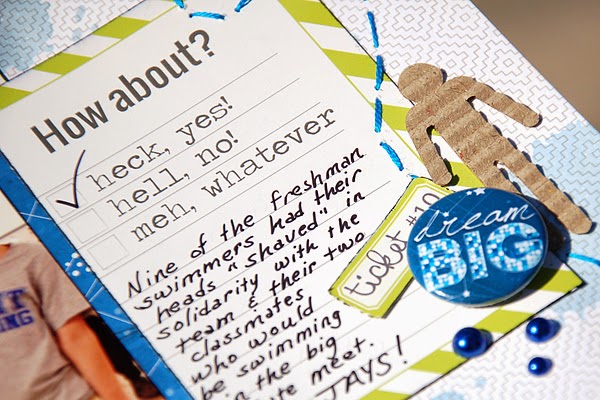 How about?
heck, yes!
hell, no!
meh, whatever
Nine of the freshman
swimmers had their
heads "shaved" in
solidarity with the
team & their two
classmates
who would
be swimming
in the big
meet.
JAYS!
ticket #10
dream
BIG